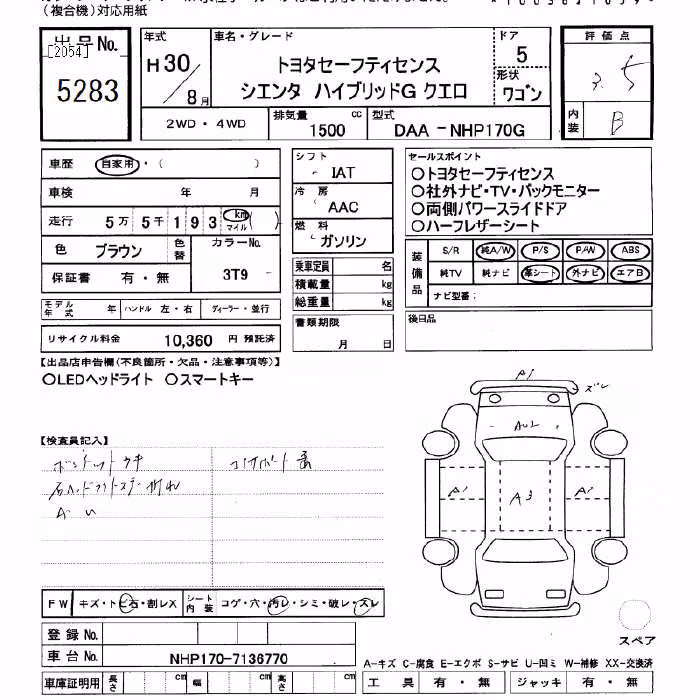 (複合機)対応用紙
出品No.
[2054]
5283
年式
H30/8月
車名・グレード
トヨタセーフティセンス
シエンタ ハイブリッドG クエロ
ドア
5
形状
ワゴン
評価点
3.5
内装
B
2WD・4WD
排気量
1500 cc
型式
DAA-NHP170G
車歴 自家用・( )
車検 年 月
走行 5万5千193 km マイル ( )
色 ブラウン
色替
カラーNo.
3T9 -
保証書 有・無
シフト
IAT
冷房
AAC
燃料
ガソリン
乗車定員 名
積載量 kg
総重量 kg
セールスポイント
○トヨタセーフティセンス
○社外ナビ・TV・バックモニター
○両側パワースライドドア
○ハーフレザーシート
装備品
S/R 純A/W P/S P/W ABS
純TV 純ナビ 革シート 外ナビ エアB
ナビ型番:
モデル年式 年 ハンドル 左・右 ディーラー・並行
リサイクル料金 10,360 円 預託済
書類期限
月 日
後日品
【出品店申告欄(不良箇所・欠品・注意事項等)】
○LEDヘッドライト ○スマートキー
【検査員記入】
A1
ズレ
AU1
A1
A3
A2
FW キズ・トビ石・割レX
シート内装 コゲ・穴・汚レ・シミ・破レ・スレ
登録No.
車台No. NHP170-7136770
車庫証明用 長さ cm 幅 cm 高さ cm
スペア
A-キズ C-腐食 E-エクボ S-サビ U-凹ミ W-補修 XX-交換済
工具 有・無 ジャッキ 有・無